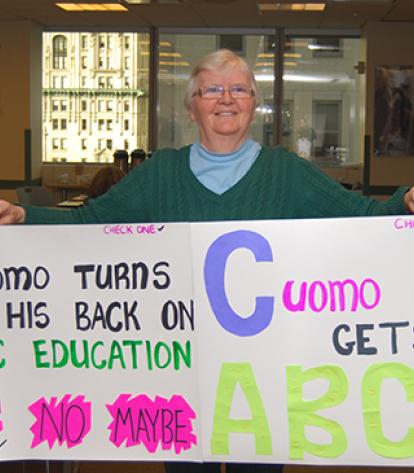 CHECK ONE ✓
OMO TURNS
HIS BACK ON
C EDUCATION
NO MAYBE
CH
CUOMO
GETS
ABC